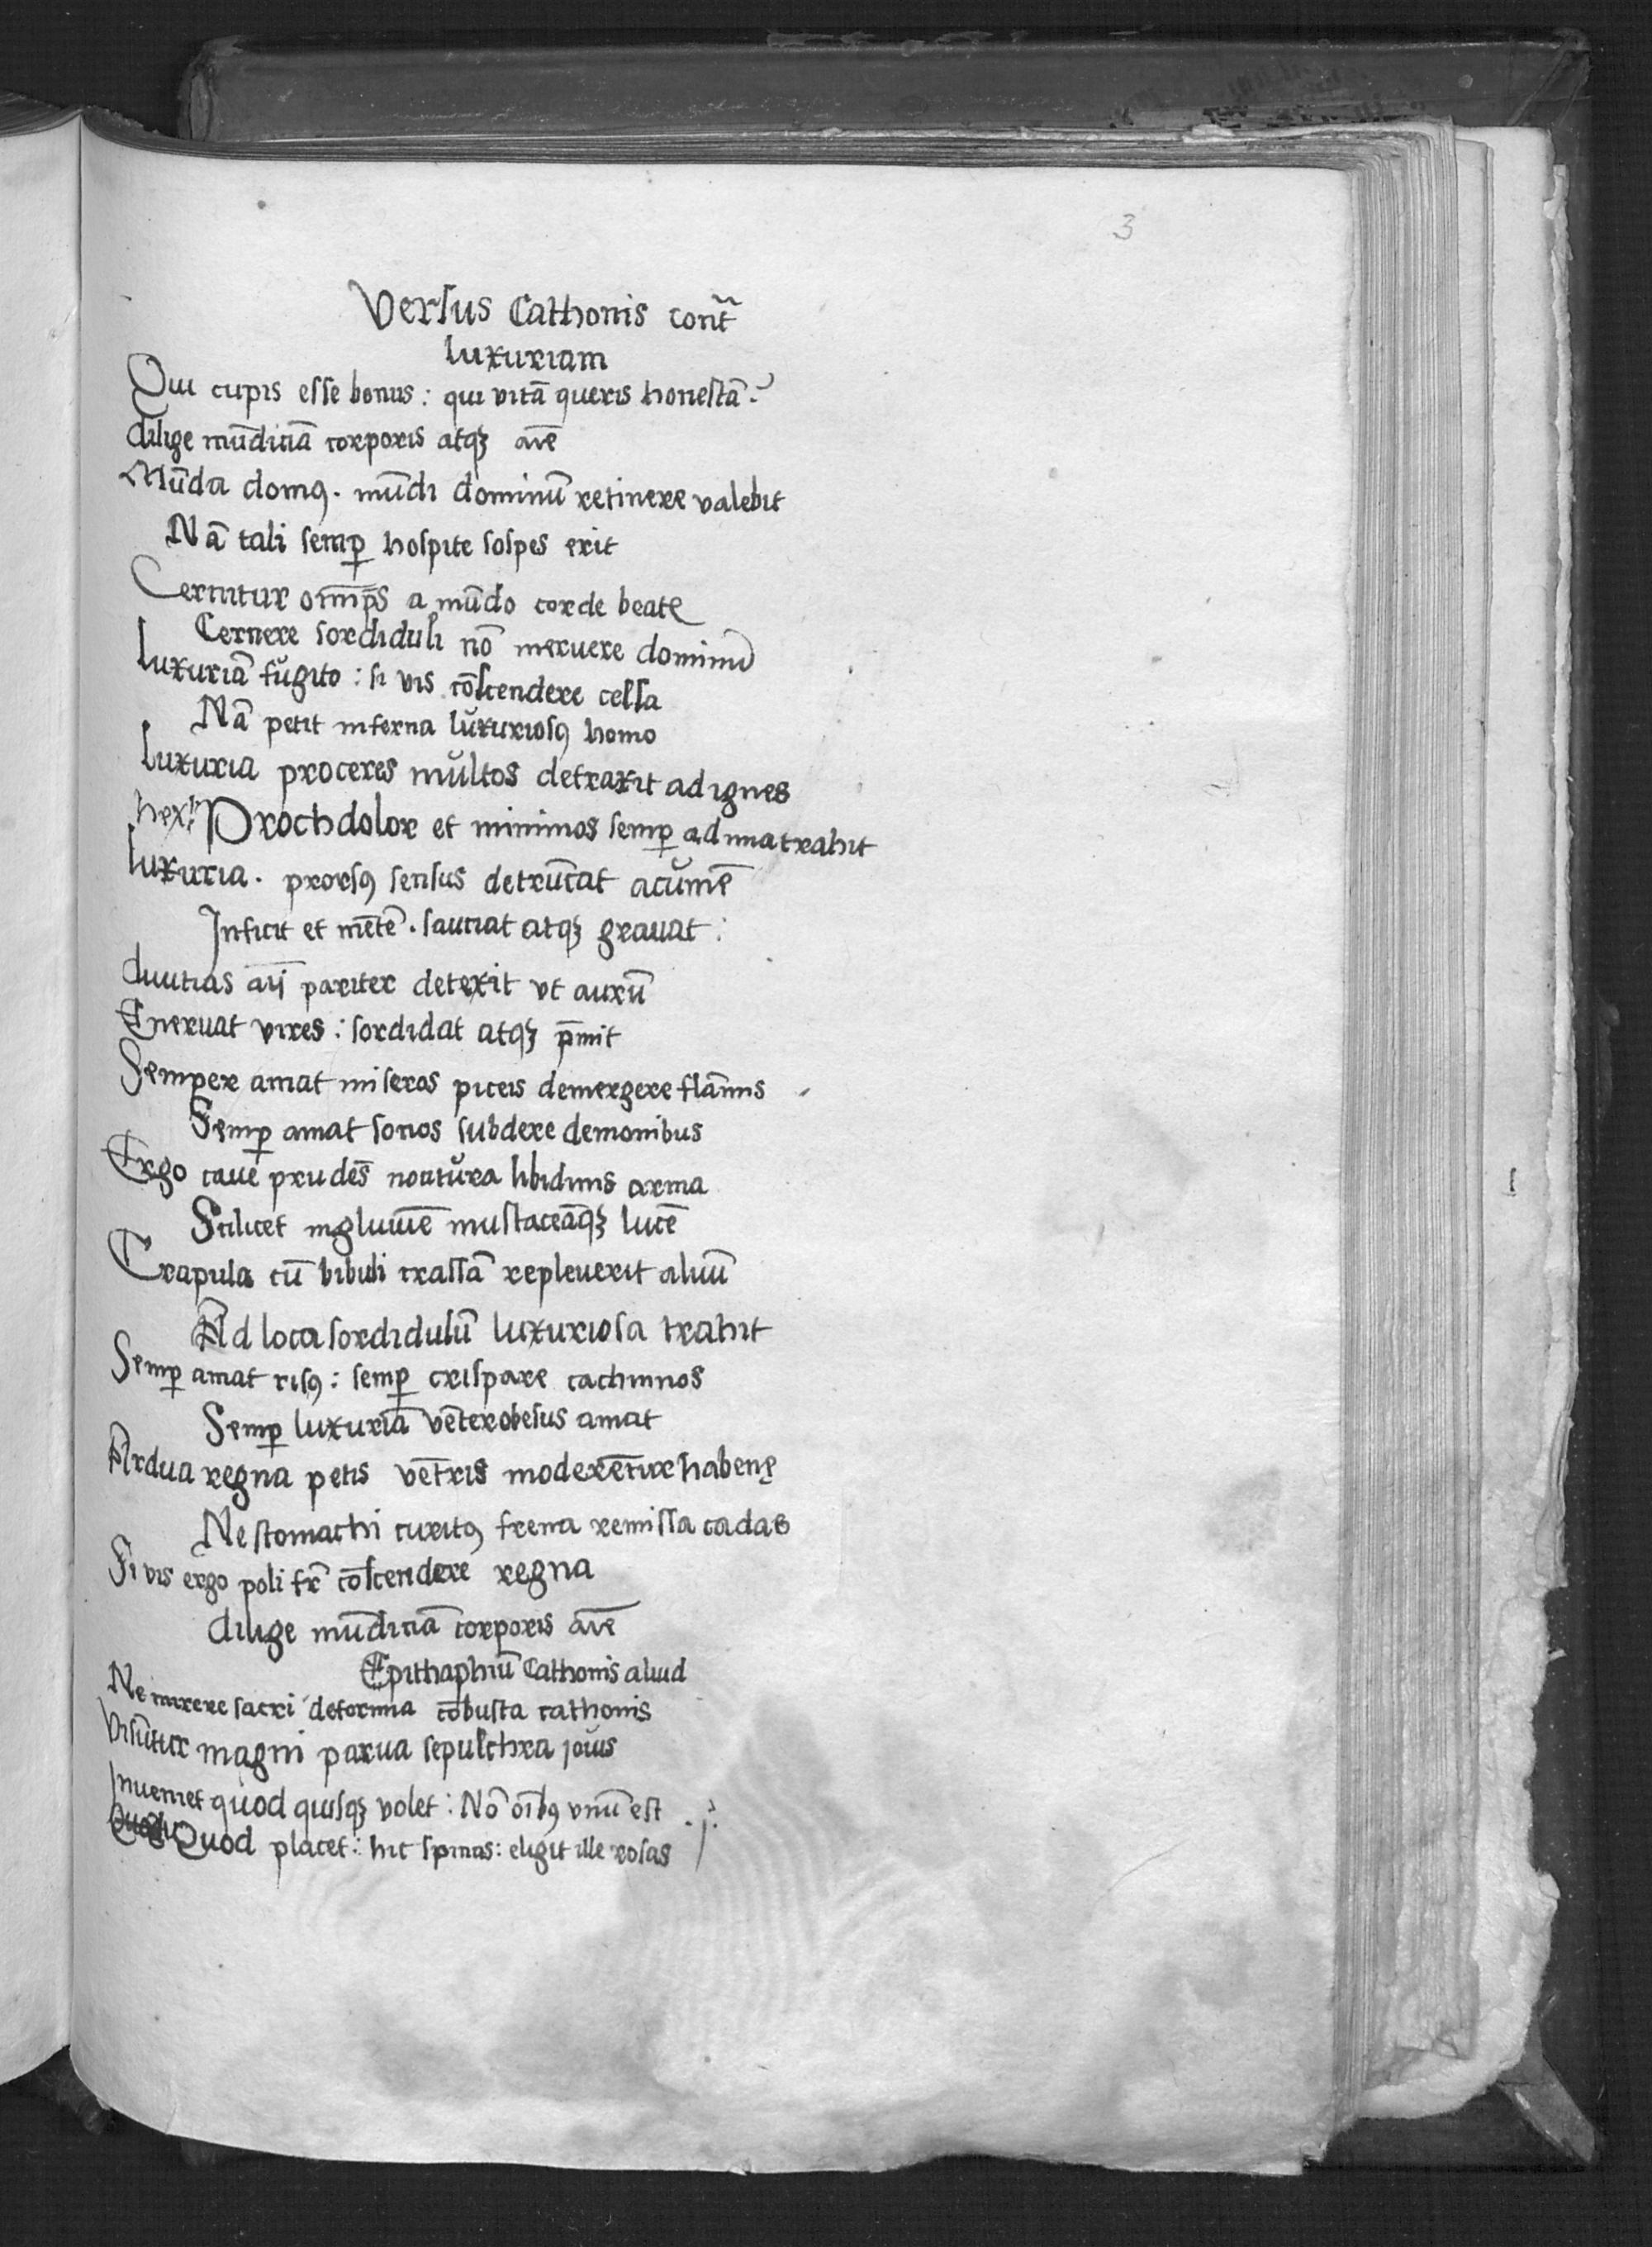 3
Versus Cathonis cont̃
luxuriam
Qui cupis esse bonus : qui vitā queris honestā.
dilige mūditiā corporis atqꝫ aīe
Mūda domꝰ . mūdi dominū retinere valebit
Nā tali semꝑ hospite sospes erit
Cernitur om̄ps a mūdo corde beate
Cernere sordiduli nō meruere dominū
luxuriā fugito : si vis cōscendere celsa
Nā petit inferna luxuriosꝰ homo
luxuria proceres multos detraxit ad ignes
Proch dolor et minimos semꝑ ad ima trahit
luxuria . prorsꝰ sensus detrūcat acumē
Inficit et mētē . sauciat atqꝫ grauat :
diuitias pariter detexit vt aurū
Eneruat vires : sordidat atqꝫ p̄mit
Semper amat miseros piceis demergere flāmis
Semꝑ amat sonos subdere demonibus
Ergo caue prudēs nocitura libidinis arma
Scilicet ingluuiē mustaceāqꝫ lucē
Crapula cū bibuli crassā repleuerit aluū
Ad loca sordidulū luxuriosa trahit
Semꝑ amat risꝰ : semꝑ crispare cachinnos
Semꝑ luxuriā vēter obesus amat
Ardua regna petis vētris moderētur habenę
Ne stomachi curitꝰ frena remissa cadas
Si vis ergo poli fr̄ cōscendere regna
dilige mūditiā corporis aīe
Epithaphiū Cathonis aliud
Ne mirere sacri deformia cōbusta cathonis
Visūtur magni parua sepulchra jouis
Inueniet quod quisqꝫ volet : Nō oībꝰ vnū est
Quod placet : hic spinas : eligit ille rosas